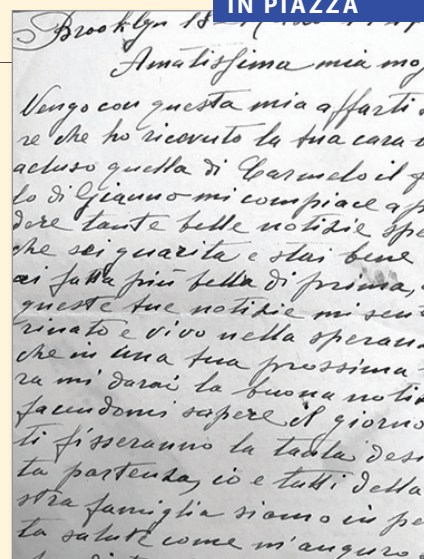 IN PIAZZA
Brooklyn 18
Amatissima mia mog
Vengo con questa mia a ffarti s
re che ho ricevuto la tua cara
acluso quella di Carmelo il
lo di Gianno mi compiace a p
dere tante belle notizie spe
che sei guarita e stai bene
ai fatta più bella di prima,
queste tue notizie mi sent
rinato e vivo nella speran
che in una tua prossima
ra mi darai la buona noti
facendomi sapere il giorno
ti fisseranno la tanta desi
ta partenza, io e tutti della
stra famiglia siamo in pe
ta salute come m'auguro